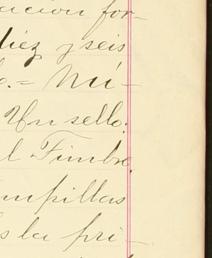 ación for-
diez y seis
o.= Nú-
Un sello:
l Timbre.
mpillas
s la pri-